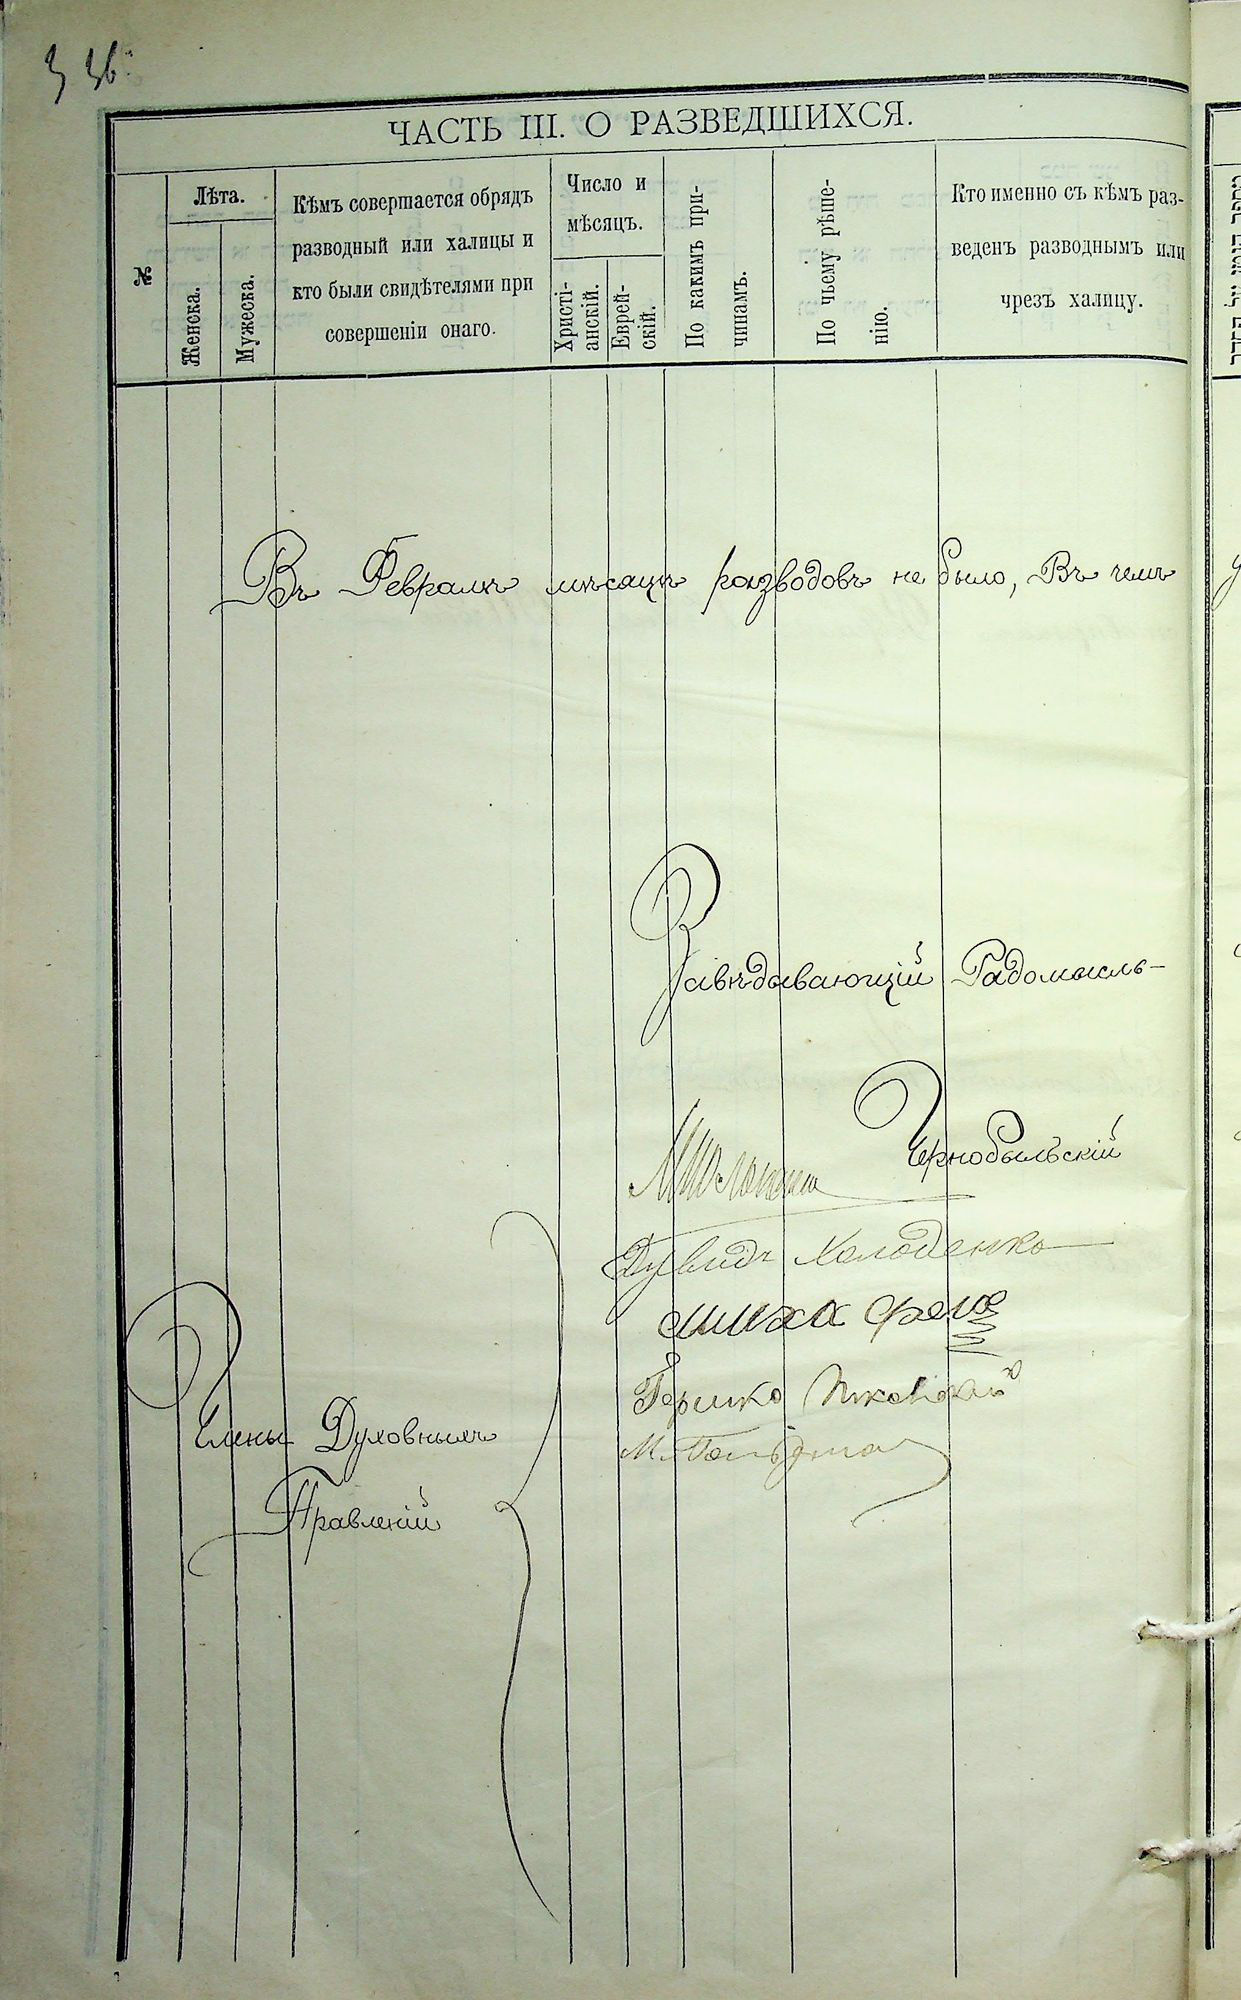 ЧАСТЬ III. О РАЗВЕДШИХСЯ.
№
Лѣта.
Женска.
Мужеска.
Кѣмъ совершается обрядъ
разводный или халицы и
кто были свидѣтелями при
совершеніи онаго.
Число и
мѣсяцъ.
Христі-
анскій.
Еврей-
скій.
По какимъ при-
чинамъ.
По чьему рѣше-
нію.
Кто именно съ кѣмъ раз-
веденъ разводнымъ или
чрезъ халицу.
Въ Февралѣ мѣсяцѣ разводовъ не было, Въ чемъ
Завѣдывающій Радомысль-
Чернобыльскій
Дувидъ Холоденко
Члены Духовныхъ
Правленій